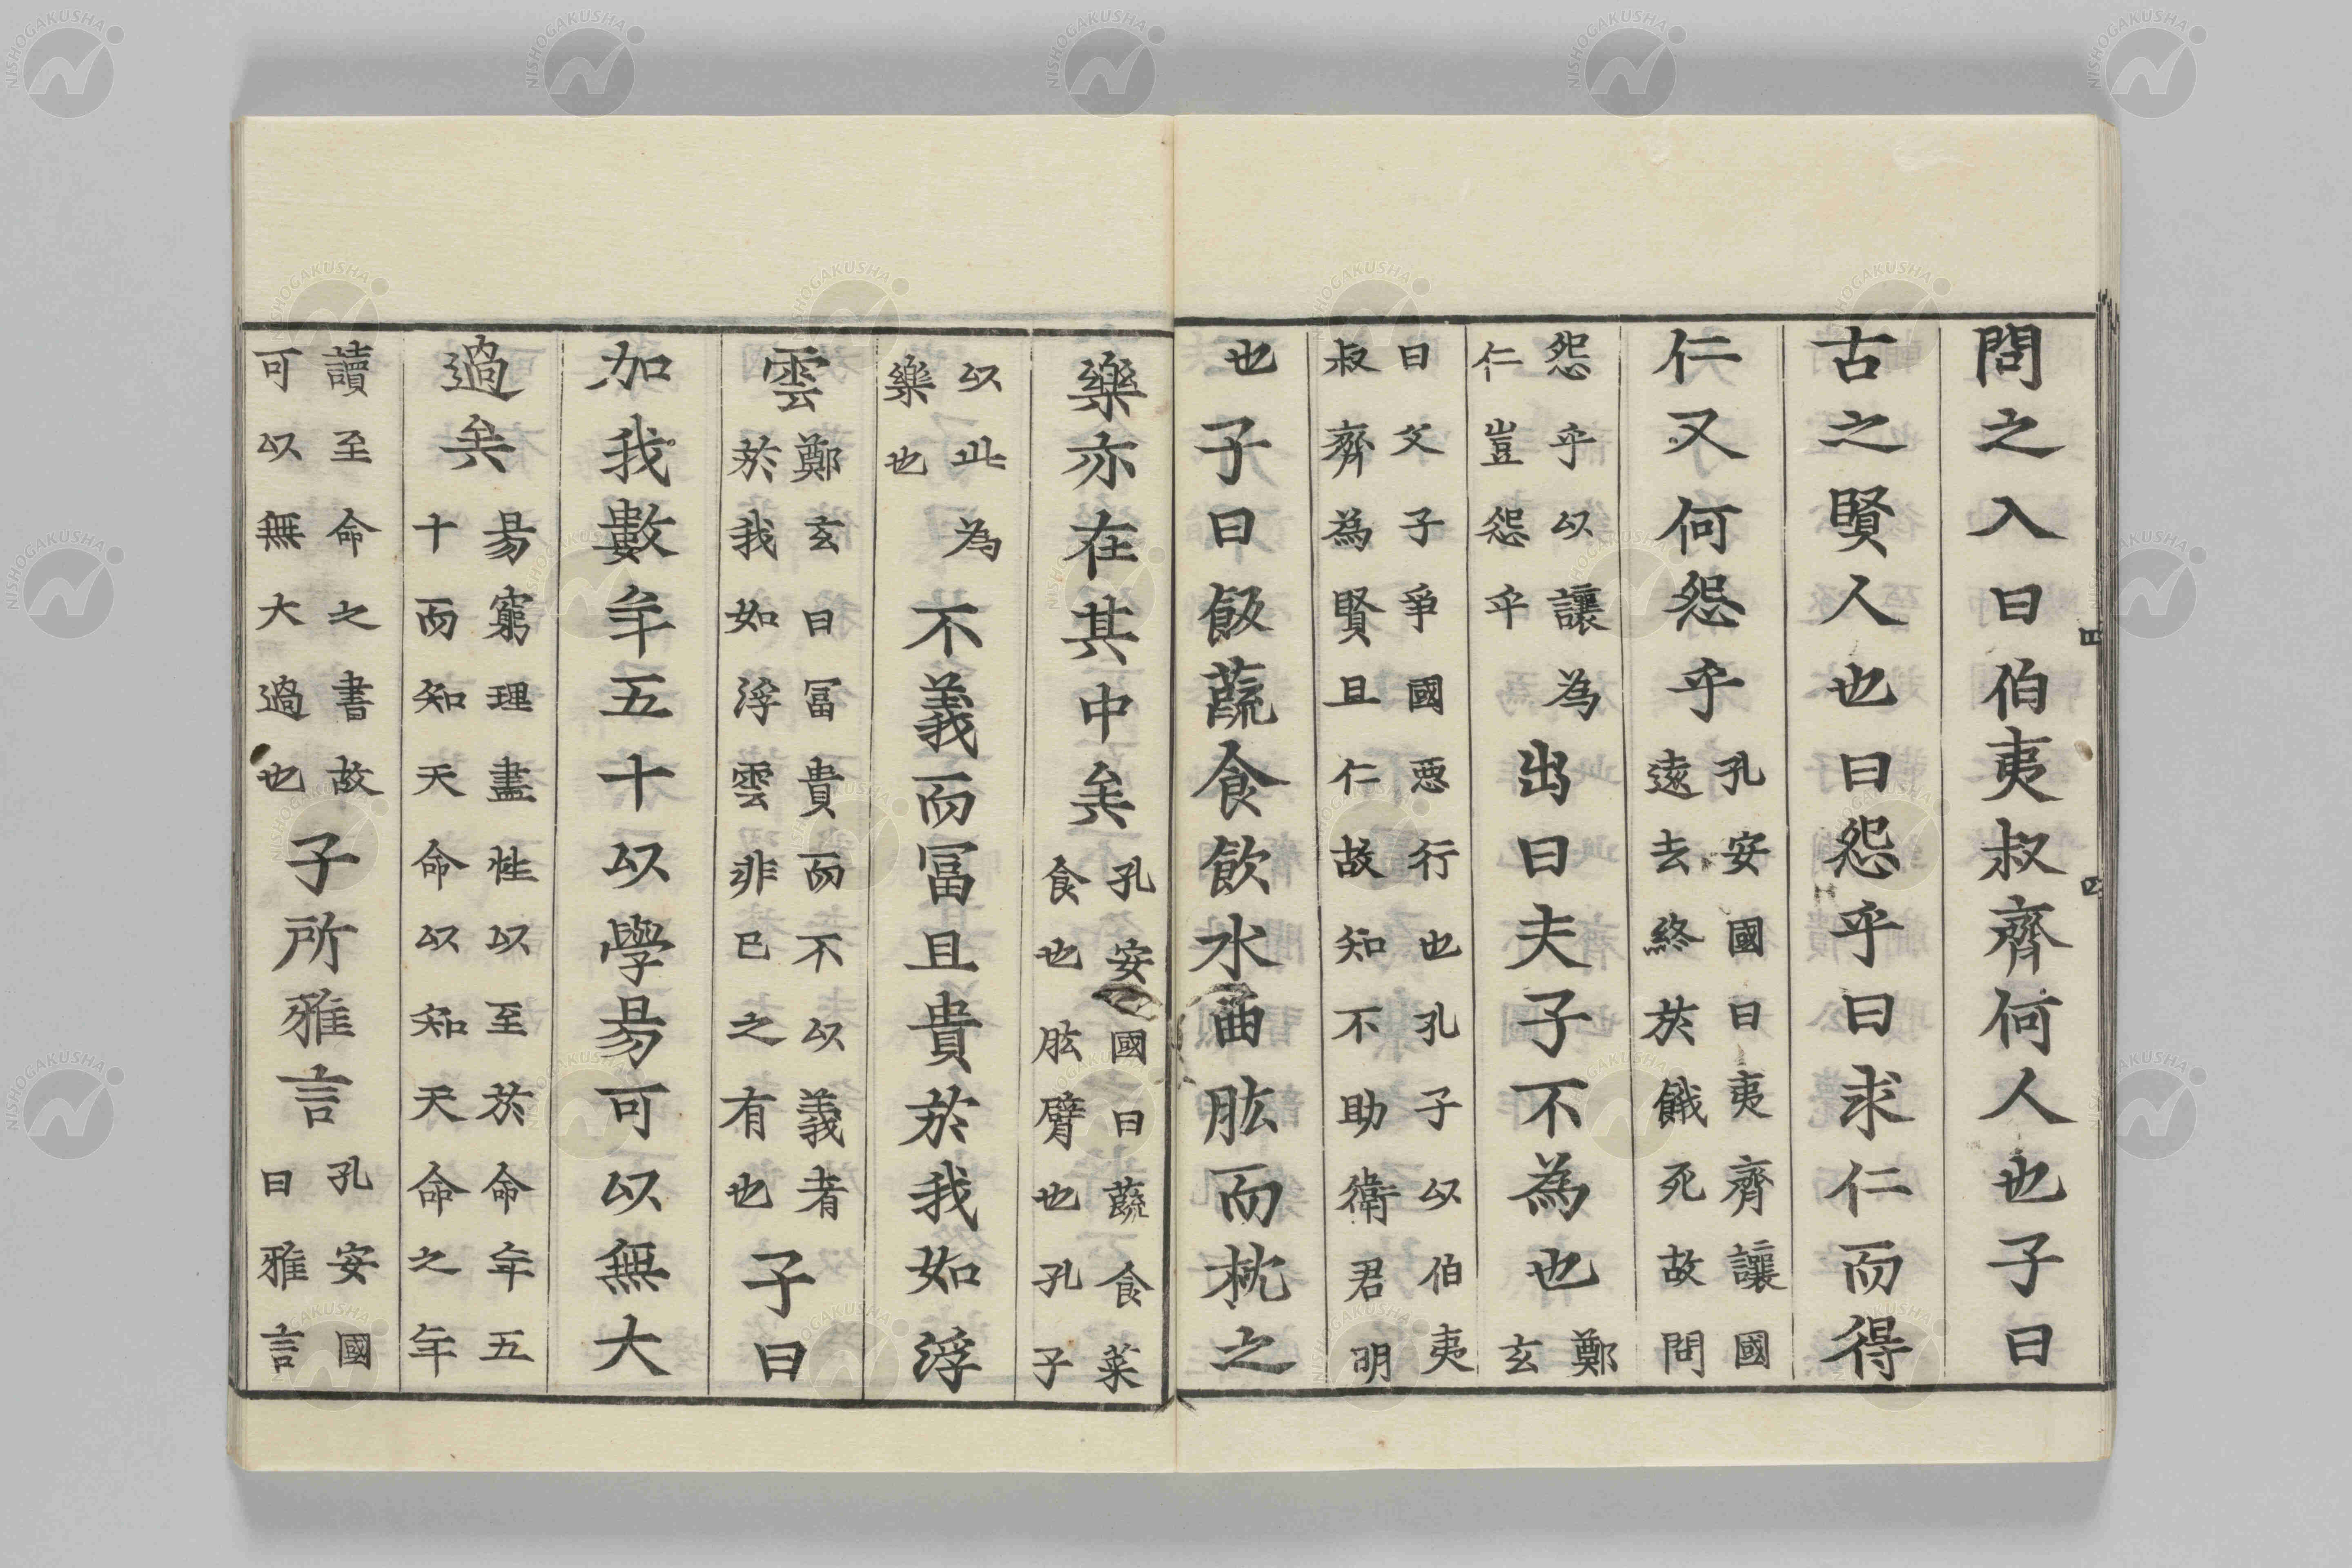 問之入曰伯夷叔齊何人也子曰
古之賢人也曰怨乎曰求仁而得
仁又何怨乎孔安國曰夷齊讓國遠去終於餓死故問
怨乎以讓為仁豈怨乎出曰夫子不為也鄭玄
曰父子爭國惡行也孔子以伯夷叔齊為賢且仁故知不助衛君明
也子曰飯蔬食飲水曲肱而枕之
樂亦在其中矣孔安國曰蔬食菜食也肱臂也孔子
以此為樂也不義而冨且貴於我如浮
雲鄭玄曰冨貴而不以義者於我如浮雲非已之有也子曰
加我數年五十以學易可以無大
過矣易窮理盡性以至於命年五十而知天命以知天命之年
讀至命之書故可以無大過也子所雅言孔安國曰雅言
NISHOGAKUSHA